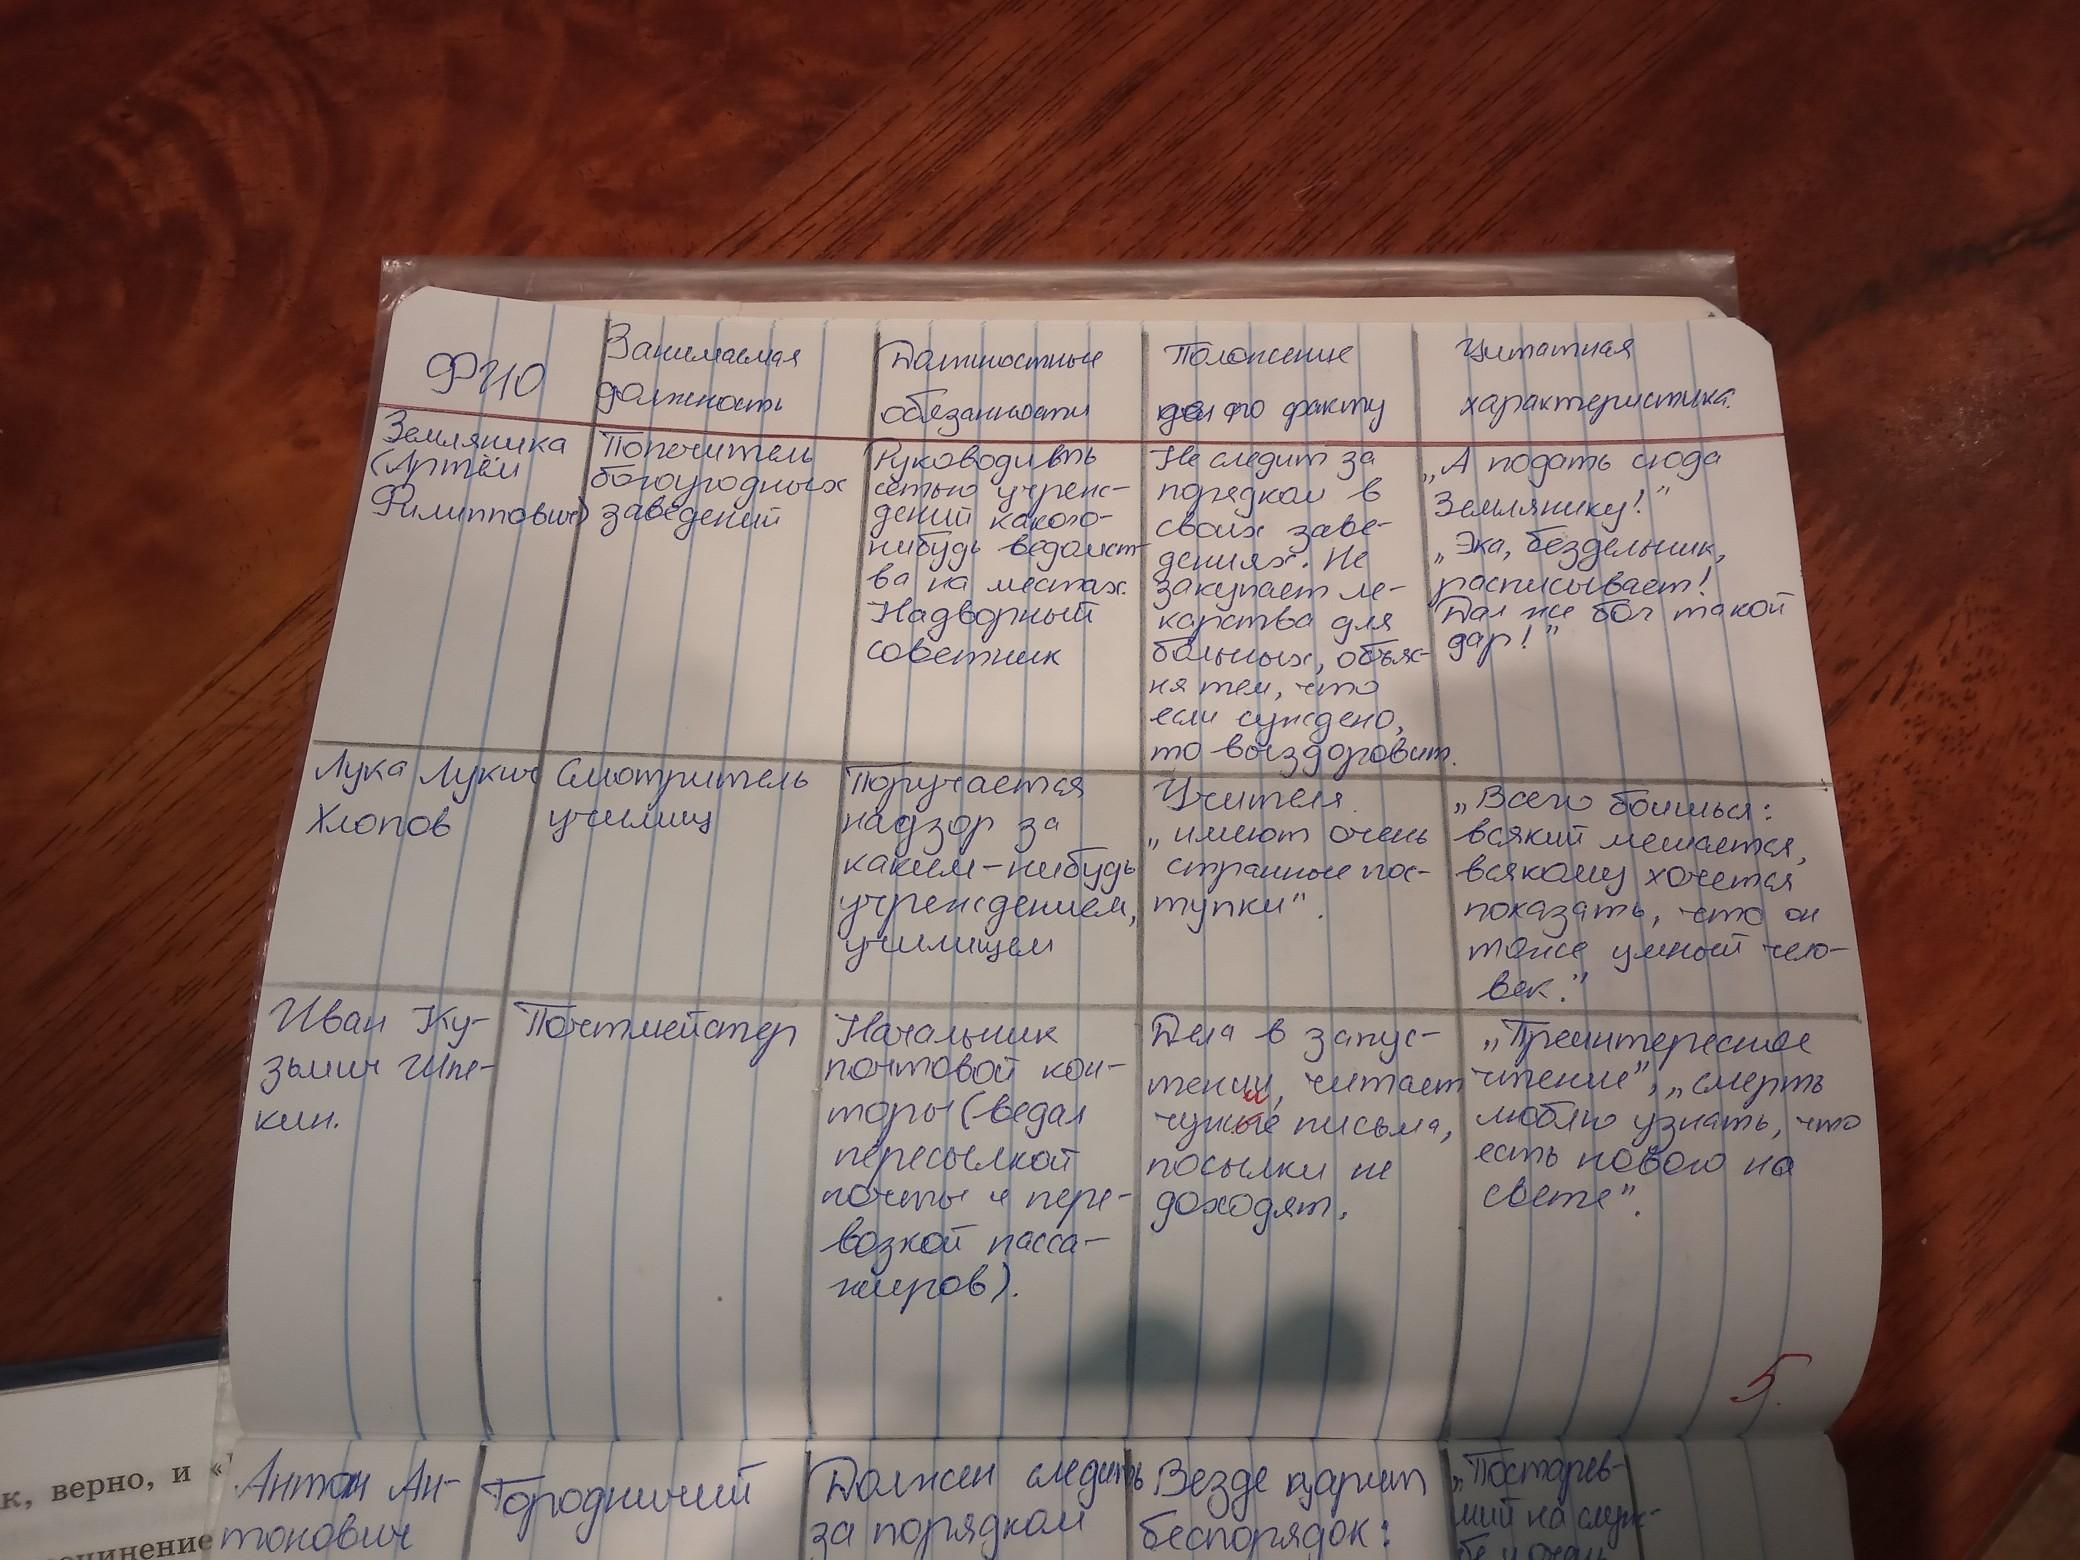 ФИО
Занимаемая
должность
Должностные
обязанности
Положение
дел по факту
Цитатная
характеристика.
Земляника
(Артём
Филиппович)
Попечитель
богоугодных
заведений
Руководить
сетью учреж-
дений какого-
нибудь ведомст-
ва на местах.
Надворный
советник
Не следит за
порядком в
своих заве-
дениях. Не
закупает ле-
карства для
больных, объяс-
ня тем, что
если суждено,
то выздоровит.
„А подать сюда
Землянику!"
„Эка, бездельник,
расписывает!
Дал же бог такой
дар!"
Лука Лукич
Хлопов
Смотритель
училищ
Поручается
надзор за
каким-нибудь
учреждением,
училищем
Учителя
„имеют очень
странные пос-
тупки".
„Всего боишься:
всякий мешается,
всякому хочется
показать, что он
тоже умный чело-
век."
Иван Ку-
зьмич Шпе-
кин.
Почтмейстер
Начальник
почтовой кон-
торы (ведал
пересылкой
почты и пере-
возкой пасса-
жиров).
Дела в запус-
тении, читает
чужие письма,
посылки не
доходят.
„Преинтересное
чтение", „смерть
люблю узнать, что
есть нового на
свете".
5
Антон Ан-
тонович
Городничий
Должен следить
за порядком
Везде царит
беспорядок:
„Постарев-
ший на служ-
бе и очень
к, верно, и «
очинение